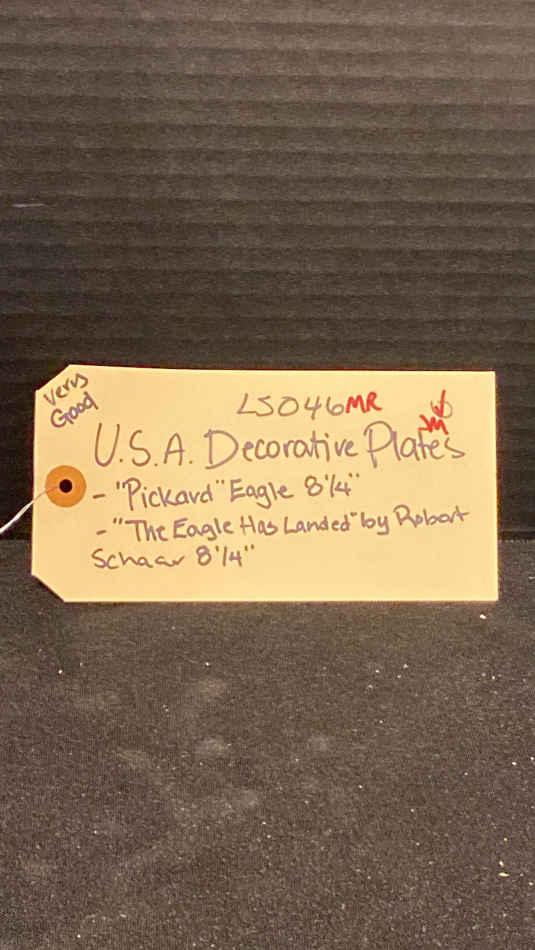 Very
Good
LS046MR
U.S.A. Decorative Plates
- "Pickard" Eagle 8 1/4"
- "The Eagle Has Landed" by Robert
Schaar 8 1/4"